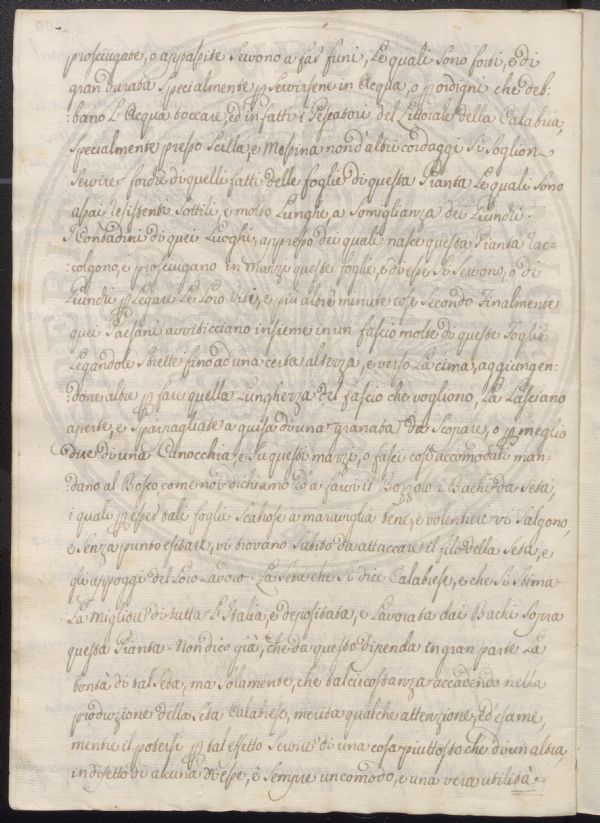 prosciugate, o appassite servono a far funi, le quali sono forti, e di
gran durata specialmente p servirsene in Acqua, o p ordigni che deb:
:bano l'Acqua toccare, ed in fatti i Pescatori del Littorale della Calabria,
specialmente presso Scilla, e Messina non d'altri cordaggi si soglion
servire fordre di quelli fatti delle foglie di questa Pianta le quali sono
assai resistenti sottili, e molto lunghe a somiglianza dei Giunchi.
I Contadini di quei Luoghi, appresso dei quali nasce questa Pianta rac=
:colgono, e prosciugano in mazzi queste foglie, e di esse si servono, o di
Giunchi p legare le loro Viti, e più altre minute cose secondo. Finalmente
quei Paesani avviticciano insieme in un fascio molte di queste foglie
legandole strette fino ad una certa altezza, e verso la cima, aggiungen:
:done altre p fare quella lungherza del fascio che vogliono, la lasciano
aperte, e sparpagliate a guisa di una granata da scopare, o p meglio
dire di una Canocchia, e su questi mazzi, o fasci così accomodati man=
:dano al Bosco, come noi dichiamo ed a farvi il Bozzolo i Bachi da Seta,
i quali p esser tali foglie scabrose a maraviglia bene, e volentieri vi salgono,
e senza punto esitare, vi trovano subito da attaccare il filo della Seta, e
gli appoggi del loro lavoro. La Seta che si dice Calabrese, e che si stima
la migliore di tutta l'Italia, è depositata, e lavorata dai Bachi sopra
questa Pianta. Non dico già, che da questo dipenda in gran parte la
bontà di tal Seta, ma solamente, che tal circostanza accadendo nella
produzione della Seta Calabrese, merita qualche attenzione, ed esame,
mentre il potersi p tal effetto servire di una cosa piuttosto che di un'altra,
in difetto di alcuna di esse, è sempre un comodo, e una vera utilità.